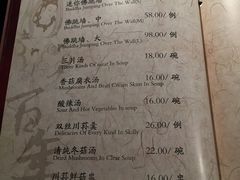 迷你佛跳墙
Buddha Jumping Over The Wall(S)
佛跳墙、中 58.00/ 例
Buddha Jumping Over The Wall(M)
佛跳墙、大 98.00/ 例
Buddha Jumping Over The Wall(L)
三片汤 18.00/ 碗
Three Kinds Of Meat In Soup
香菇腐衣汤 16.00/ 碗
Mushrooms And Bean Cream Skin In Soup
酸辣汤 16.00/ 碗
Sour And Hot Vegetables In Soup
双丝川荪羹 26.00/ 例
Delicacies Of Every Kind In Skilly
清炖冬菇汤 22.00/ 碗
Dried Mushrooms In Clear Soup
川荪鲜菇 18.00/ 碗